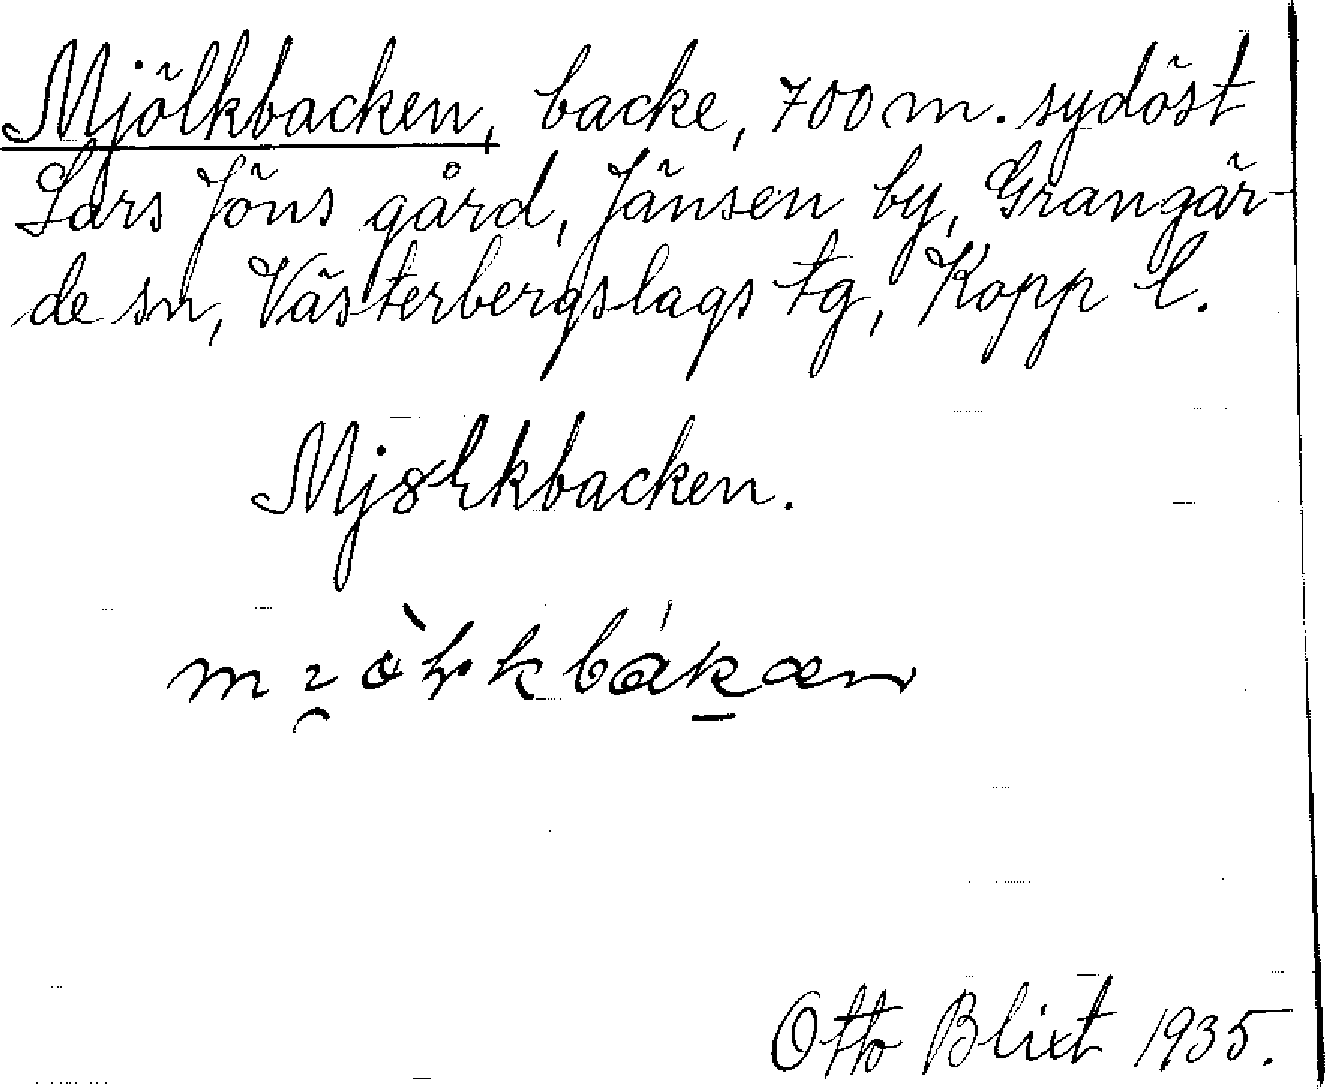 Mjölkbacken, backe, 700 m. sydöst
Lars Jöns gård, Jänsen by, Grangär-
de sn, Västerbergslags tg, Kopp l.
Mjölkbacken.
Otto Blixt 1935.